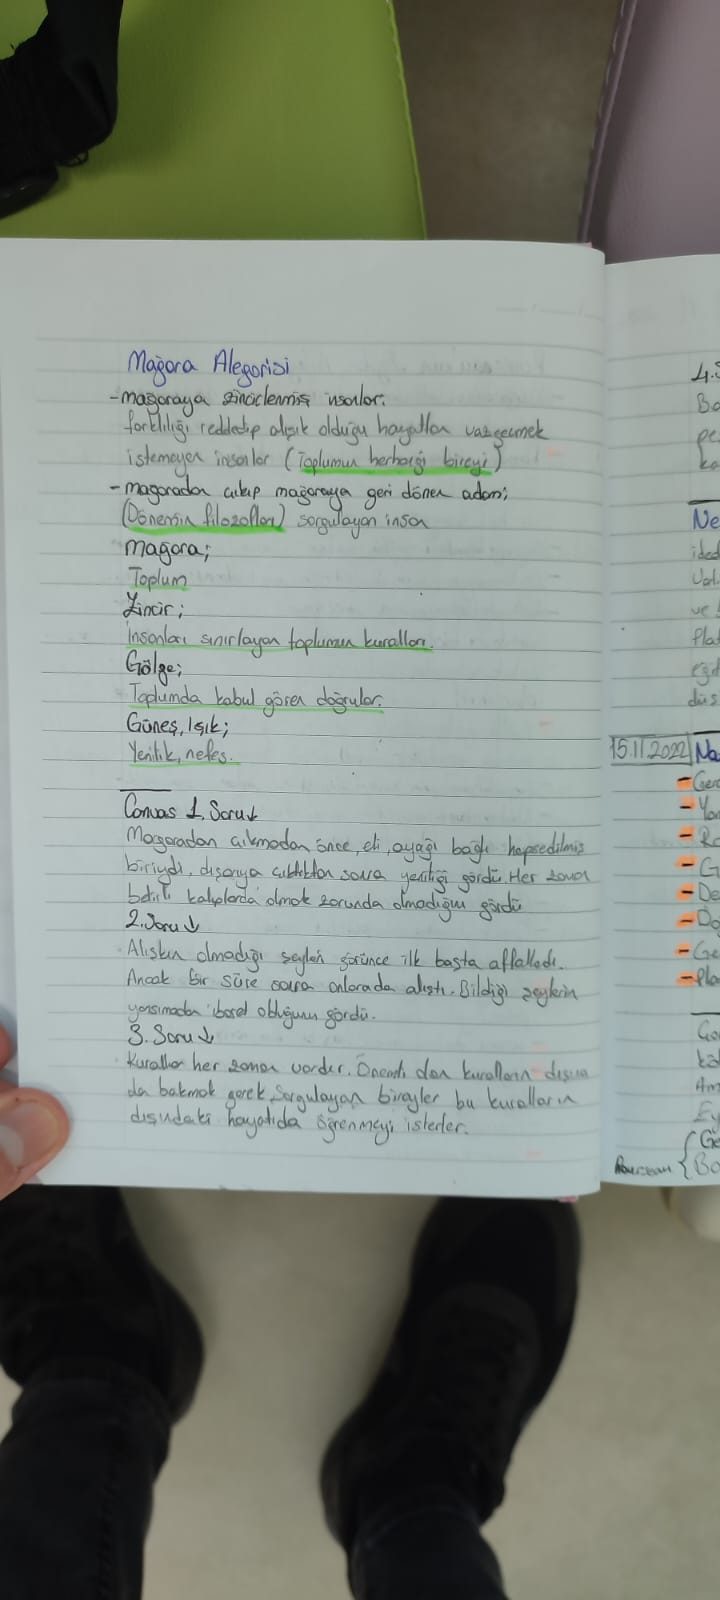 Mağara Alegorisi
-mağaraya zincirlenmiş insanlar;
farklılığı reddedip alışık olduğu hayattan vazgeçmek
istemeyen insanlar (Toplumun herhangi bireyi)
-mağaradan çıkıp mağaraya geri dönen adam;
(Dönemin filozofları) sorgulayan insan
Mağara;
Toplum
Zincir;
İnsanları sınırlayan toplumun kuralları.
Gölge;
Toplumda kabul gören doğrular.
Güneş, Işık;
Yenilik, nefes.
Canvas 1. Soru↓
Mağaradan çıkmadan önce, eli, ayağı bağlı hapsedilmiş
biriydi, dışarıya çıktıktan sonra yeniliği gördü. Her zaman
belirli kalıplarda olmak zorunda olmadığını gördü
2. Soru↓
Alışkın olmadığı şeyleri görünce ilk başta afalladı.
Ancak bir süre sonra onlarada alıştı. Bildiği şeylerin
yansımadan ibaret olduğunu gördü.
3. Soru↓
Kurallar her zaman vardır. Önemli olan kuralların dışına
da bakmak gerek, Sorgulayan bireyler bu kuralların
dışındaki hayatıda öğrenmeyi isterler.
4.
Ne
ve
15.11.2022
Rousseau